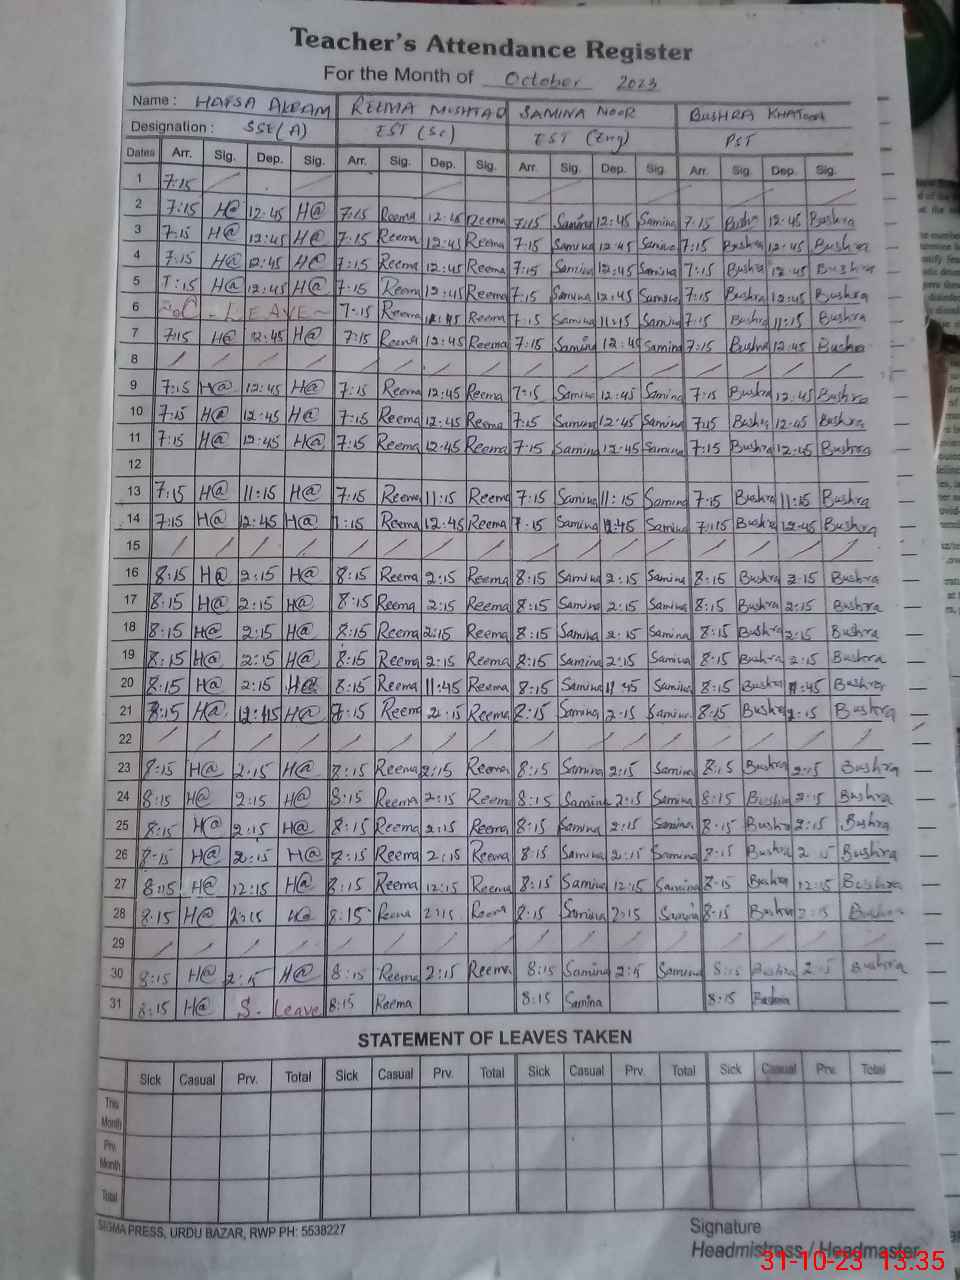 Teacher's Attendance Register
For the Month of October 2023
Name : HAFSA AKRAM REEMA MUSHTAQ SAMINA NOOR BUSHRA KHATOON
Designation : SSE(A) EST (Sc) EST (Eng) PST
Dates Arr. Sig. Dep. Sig. Arr. Sig. Dep. Sig. Arr. Sig. Dep. Sig. Arr. Sig. Dep. Sig.
1 7:15
2 7:15 H@ 12:45 H@ 7:15 Reema 12:45 Reema 7:15 Samina 12:45 Samina 7:15 Bushra 12:45 Bushra
3 7:15 H@ 12:45 H@ 7:15 Reema 12:45 Reema 7:15 Samina 12:45 Samina 7:15 Bushra 12:45 Bushra
4 7:15 H@ 12:45 H@ 7:15 Reema 12:45 Reema 7:15 Samina 12:45 Samina 7:15 Bushra 12:45 Bushra
5 7:15 H@ 12:45 H@ 7:15 Reema 12:45 Reema 7:15 Samina 12:45 Samina 7:15 Bushra 12:45 Bushra
6 LEAVE 7:15 Reema Reema 7:15 Samina 11:15 Samina 7:15 Bushra 11:15 Bushra
7 7:15 H@ 12:45 H@ 7:15 Reema 12:45 Reema 7:15 Samina 12:45 Samina 7:15 Bushra 12:45 Bushra
8
9 7:15 H@ 12:45 H@ 7:15 Reema 12:45 Reema 7:15 Samina 12:45 Samina 7:15 Bushra 12:45 Bushra
10 7:15 H@ 12:45 H@ 7:15 Reema 12:45 Reema 7:15 Samina 12:45 Samina 7:15 Bushra 12:45 Bushra
11 7:15 H@ 12:45 H@ 7:15 Reema 12:45 Reema 7:15 Samina 12:45 Samina 7:15 Bushra 12:45 Bushra
12
13 7:15 H@ 11:15 H@ 7:15 Reema 11:15 Reema 7:15 Samina 11:15 Samina 7:15 Bushra 11:15 Bushra
14 7:15 H@ 12:45 H@ 7:15 Reema 12:45 Reema 7:15 Samina 12:45 Samina 7:15 Bushra 12:45 Bushra
15
16 8:15 H@ 2:15 H@ 8:15 Reema 2:15 Reema 8:15 Samina 2:15 Samina 8:15 Bushra 2:15 Bushra
17 8:15 H@ 2:15 H@ 8:15 Reema 2:15 Reema 8:15 Samina 2:15 Samina 8:15 Bushra 2:15 Bushra
18 8:15 H@ 2:15 H@ 8:15 Reema 2:15 Reema 8:15 Samina 2:15 Samina 8:15 Bushra 2:15 Bushra
19 8:15 H@ 2:15 H@ 8:15 Reema 2:15 Reema 8:15 Samina 2:15 Samina 8:15 Bushra 2:15 Bushra
20 8:15 H@ 2:15 H@ 8:15 Reema 11:45 Reema 8:15 Samina 11:45 Samina 8:15 Bushra 11:45 Bushra
21 8:15 H@ H@ 8:15 Reema 2:15 Reema 8:15 Samina 2:15 Samina 8:15 Bushra 2:15 Bushra
22
23 8:15 H@ 2:15 H@ 8:15 Reema 2:15 Reema 8:15 Samina 2:15 Samina 8:15 Bushra 2:15 Bushra
24 8:15 H@ 2:15 H@ 8:15 Reema 2:15 Reema 8:15 Samina 2:15 Samina 8:15 Bushra 2:15 Bushra
25 8:15 H@ 2:15 H@ 8:15 Reema 2:15 Reema 8:15 Samina 2:15 Samina 8:15 Bushra 2:15 Bushra
26 8:15 H@ 2:15 H@ 8:15 Reema 2:15 Reema 8:15 Samina 2:15 Samina 8:15 Bushra 2:15 Bushra
27 8:15 H@ 12:15 H@ 8:15 Reema 12:15 Reema 8:15 Samina 12:15 Samina 8:15 Bushra 12:15 Bushra
28 8:15 H@ 2:15 H@ 8:15 Reema 2:15 Reema 8:15 Samina 2:15 Samina 8:15 Bushra 2:15 Bushra
29
30 8:15 H@ 2:15 H@ 8:15 Reema 2:15 Reema 8:15 Samina 2:15 Samina 8:15 Bushra 2:15 Bushra
31 8:15 H@ S. Leave 8:15 Reema 8:15 Samina 8:15 Bushra
STATEMENT OF LEAVES TAKEN
Sick Casual Prv. Total Sick Casual Prv. Total Sick Casual Prv. Total Sick Casual Prv. Total
This Month
Prv. Month
Total
SIGMA PRESS, URDU BAZAR, RWP PH: 5538227
Signature
Headmistress / Headmaster
31-10-23 13:35